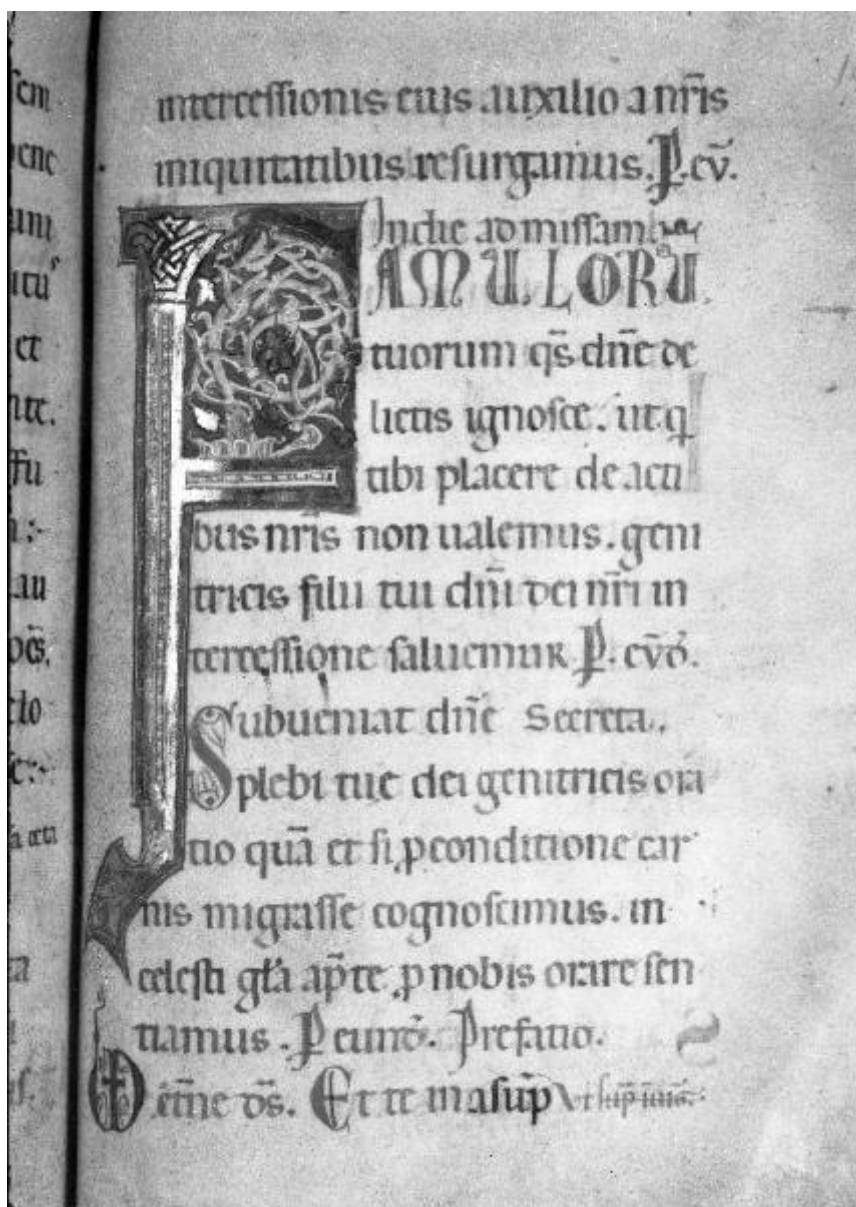 sem
intercessionis eius auxilio a nr̄is
iniquitatibus resurgamus. P. eū.
In die ad missam
FAMULORU
tuorum qs̄ dn̄e de
lictis ignosce. ut q
tibi placere de acti
bus nr̄is non ualemus. geni
tricis filii tui dn̄i dei nr̄i in
tercessione saluemur P. eūd̄.
Subueniat dn̄e Secreta.
plebi tue dei genitricis ora
tio quā et si ꝓ conditione car
nis migrasse cognoscimus. in
celesti gl̄a ap̄te ꝓ nobis orare sen
tiamus. P eund̄. Prefatio.
et̄ne ds̄. Et te in
et
ffu
au
clo